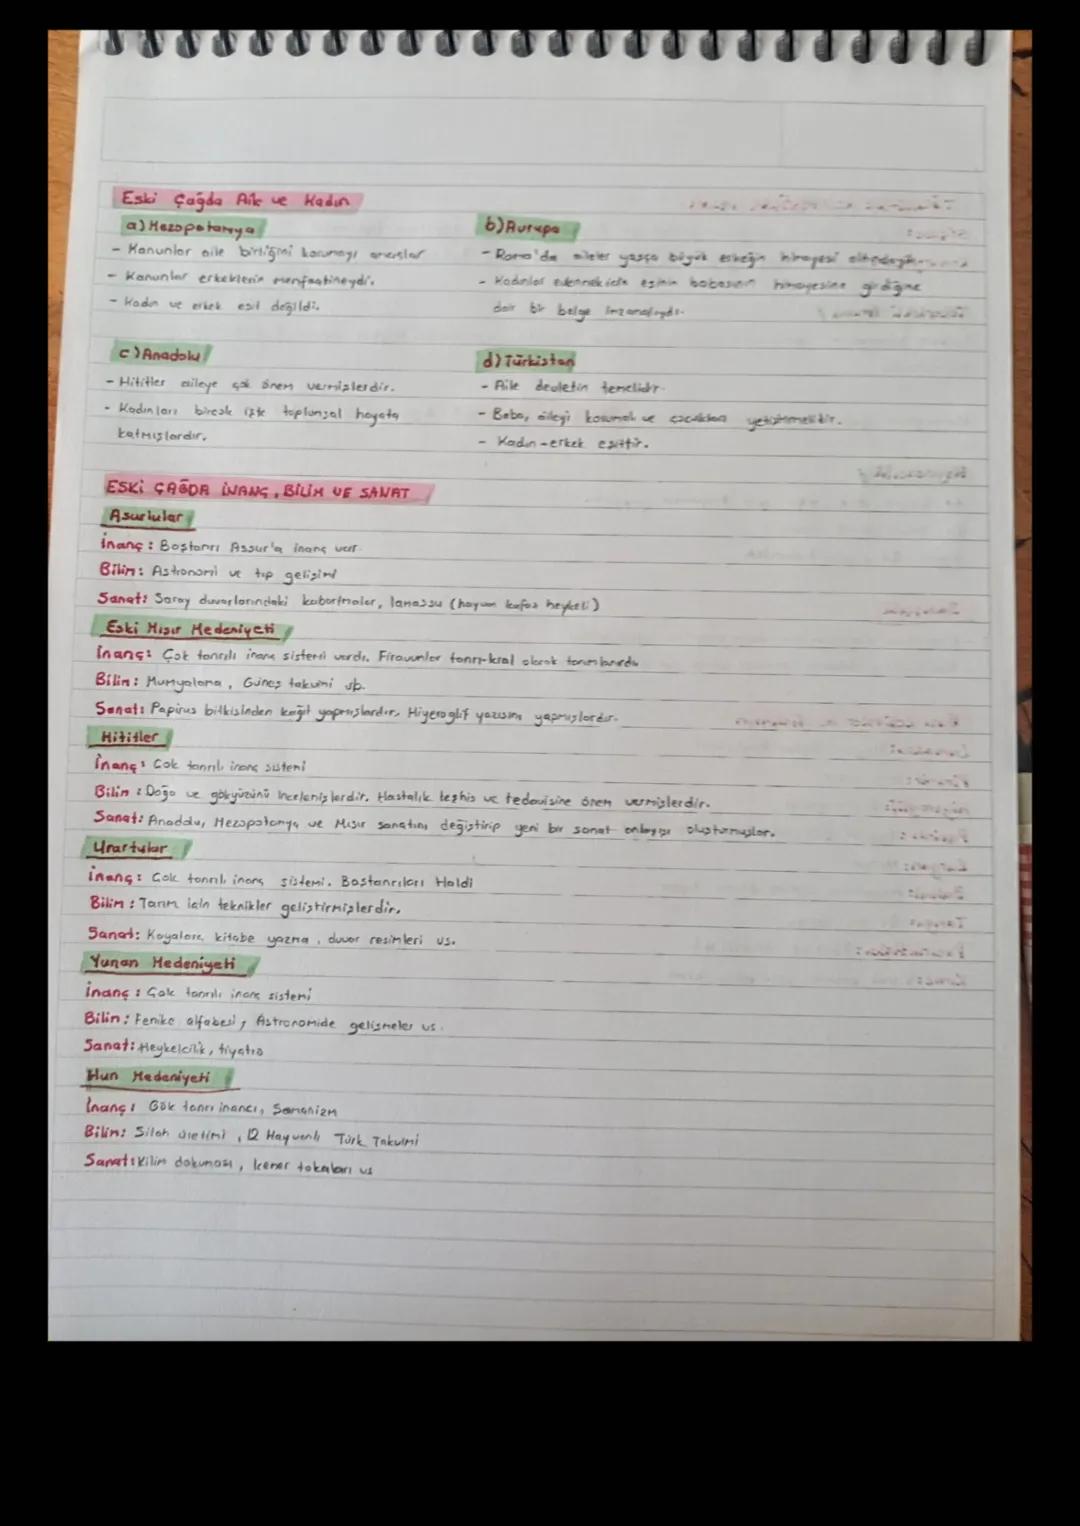 Eski Çağda Aile ve Kadın
a) Mezopotamya
- Kanunlar aile birliğini korumayı amaçlar
- Kanunlar erkeklerin menfaatineydi.
- Kadın ve erkek eşit değildi.
b) Avrupa
- Roma'da aileler yaşça büyük erkeğin himayesi altındaydı.
- Kadınlar evlenmek için eşinin babasının himayesine girdiğine
dair bir belge imzamalıydı.
c) Anadolu
- Hititler aileye çok önem vermişlerdir.
- Kadınları birçok işte toplumsal hayata
katmışlardır.
d) Türkistan
- Aile devletin temelidir.
- Baba, aileyi korumalı ve çocukları yetiştirmelidir.
- Kadın-erkek eşittir.
ESKİ ÇAĞDA İNANÇ, BİLİM VE SANAT
Asurlular
İnanç: Baştanrı Assur'a inanç var.
Bilim: Astronomi ve tıp gelişimi
Sanat: Saray duvarlarındaki kabartmalar, lamassu (hayvan kafas heykeli)
Eski Mısır Medeniyeti
İnanç: Çok tanrılı inanç sistemi vardı. Firavunlar tanrı-kral olarak tanımlanırdı
Bilim: Mumyalama, Güneş takvimi vb.
Sanat: Papirus bitkisinden kağıt yapmışlardır. Hiyeroglif yazısını yapmışlardır.
Hititler
İnanç: Çok tanrılı inanç sistemi
Bilim: Doğa ve gökyüzünü incelemişlerdir. Hastalık teşhis ve tedavisine önem vermişlerdir.
Sanat: Anadolu, Mezopotamya ve Mısır sanatını değiştirip yeni bir sanat anlayışı oluşturmuşlar.
Urartular
İnanç: Çok tanrılı inanç sistemi. Baştanrıları Haldi
Bilim: Tarım için teknikler geliştirmişlerdir.
Sanat: Kayalara kitabe yazma, duvar resimleri vs.
Yunan Medeniyeti
İnanç: Çok tanrılı inanç sistemi
Bilim: Fenike alfabesi, Astronomide gelişmeler vs.
Sanat: Heykelcilik, tiyatro
Hun Medeniyeti
İnanç: Gök tanrı inancı, Şamanizm
Bilim: Silah üretimi, 12 Hayvanlı Türk Takvimi
Sanat: Kilim dokuması, kemer tokaları vs